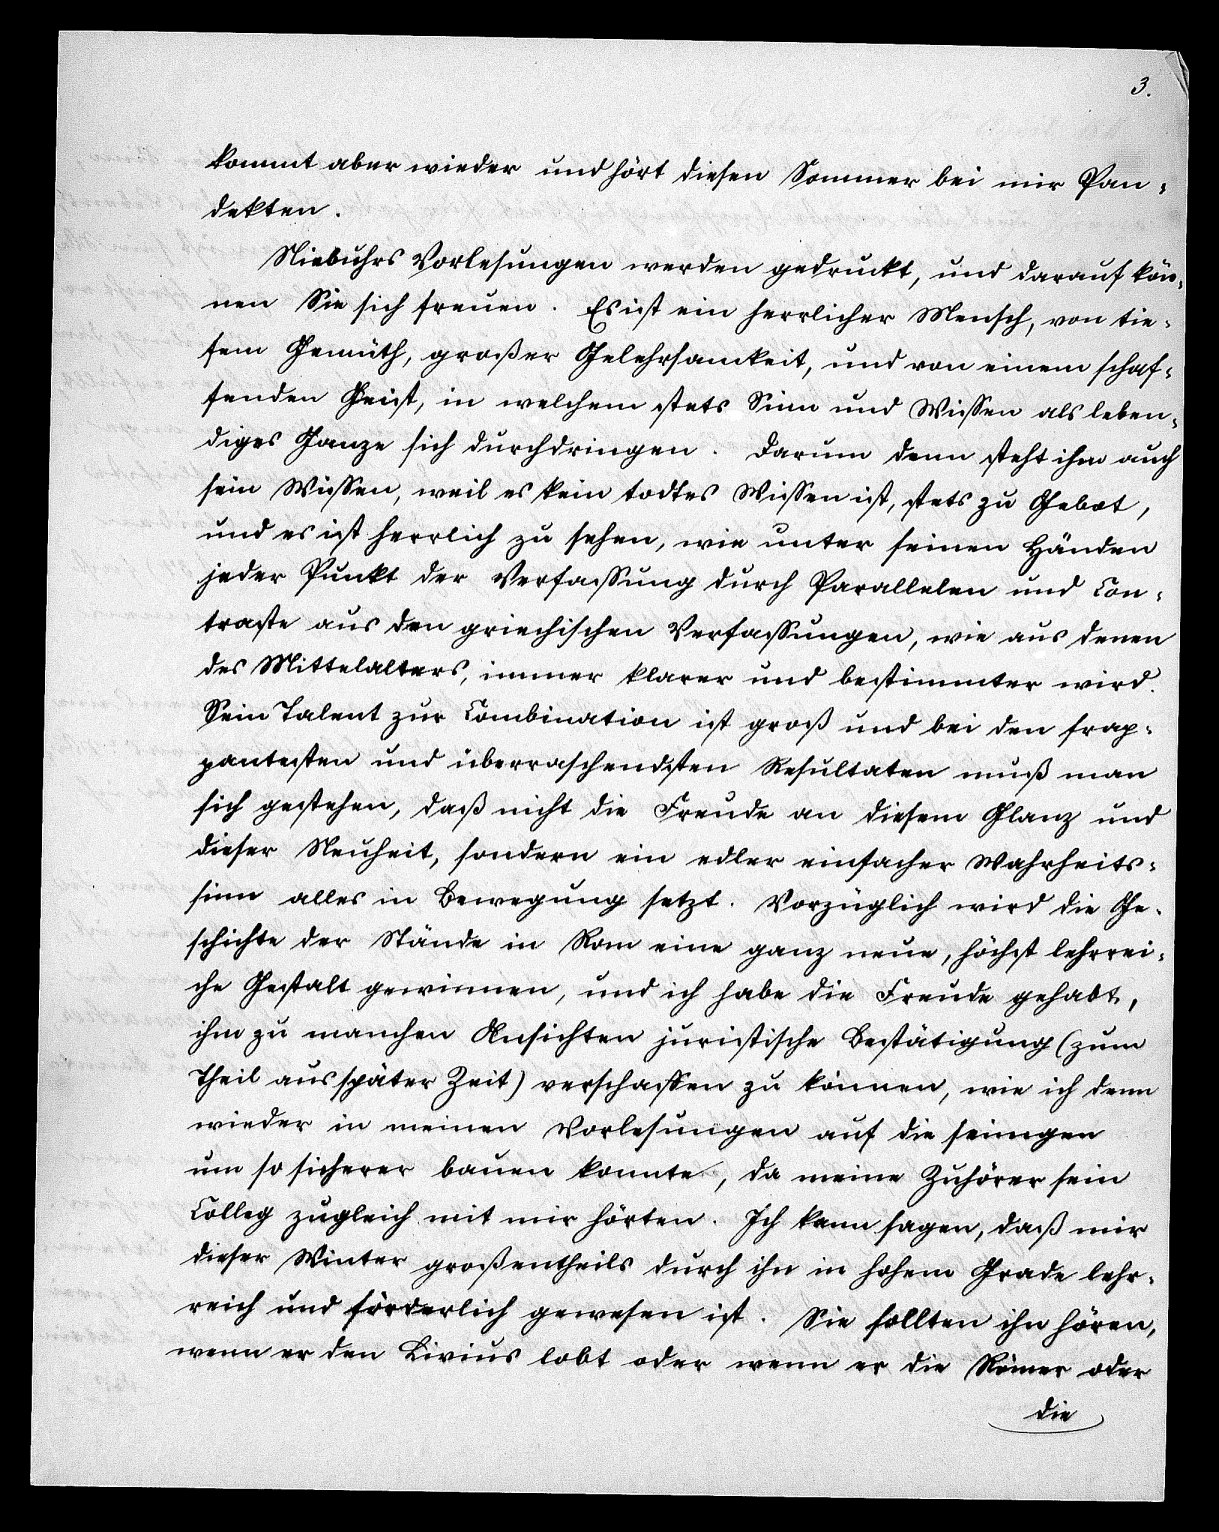 3.
kommt aber wieder und hört diesen Sommer bei mir Pan-
dekten.
Niebuhrs Vorlesungen werden gedruckt, und darauf kön-
nen Sie sich freuen. Es ist ein herrlicher Mensch, von tie-
fem Gemüth, großer Gelehrsamkeit, und von einem schaf-
fenden Geist, in welchem stets Sinn und Wissen als leben-
diges Ganze sich durchdringen. Darum denn steht ihm auch
sein Wissen, weil es kein todtes Wissen ist, stets zu Gebot,
und es ist herrlich zu sehen, wie unter seinen Händen
jeder Punkt der Verfassung durch Parallelen und Con-
traste aus den griechischen Verfassungen, wie aus denen
des Mittelalters, immer klarer und bestimmter wird.
Sein Talent zur Combination ist groß und bei den frap-
pantesten und überraschendsten Resultaten muß man
sich gestehen, daß nicht die Freude an diesem Glanz und
dieser Neuheit, sondern ein edler einfacher Wahrheits-
sinn alles in Bewegung setzt. Vorzüglich wird die Ge-
schichte der Stände in Rom eine ganz neue, höchst lehrrei-
che Gestalt gewinnen, und ich habe die Freude gehabt,
ihm zu manchen Ansichten juristische Bestätigung (zum
Theil aus später Zeit) verschaffen zu können, wie ich denn
wieder in meinen Vorlesungen auf die seinigen
um so sicherer bauen konnte, da meine Zuhörer sein
Colleg zugleich mit mir hörten. Ich kann sagen, daß mir
dieser Winter großentheils durch ihn in hohem Grade lehr-
reich und förderlich gewesen ist. Sie sollten ihn hören,
wenn er den Livius lobt oder wenn er die Römer oder
die